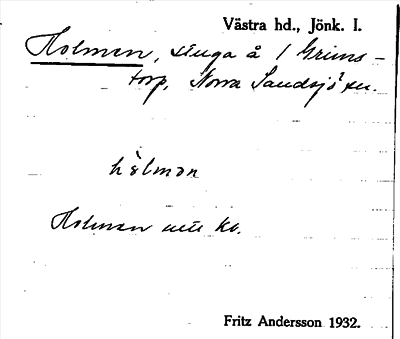 Västra hd., Jönk. l.
Holmen, stuga å 1 Grims-
torp, Norra Sandsjö sn.
hòlmən
Holmen utt. kt.
Fritz Andersson 1932.